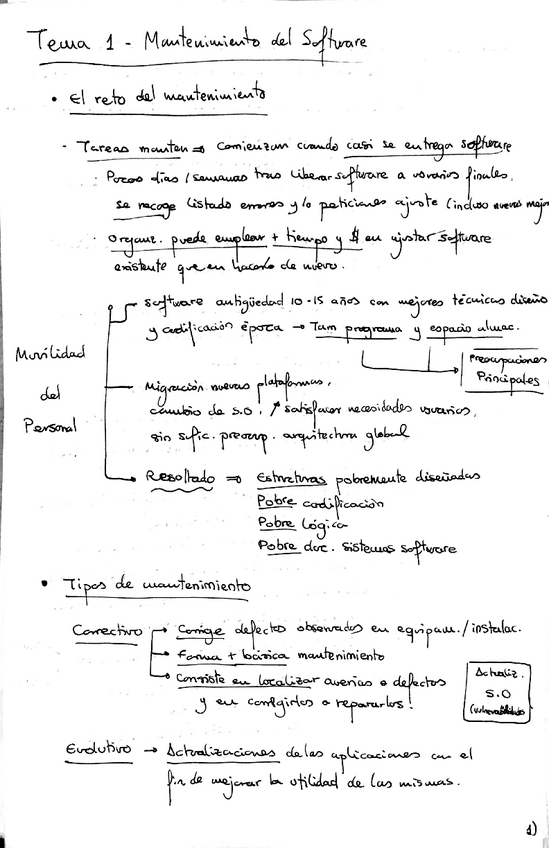 Tema 1 - Mantenimiento del Software
• El reto del mantenimiento
- Tareas manten ⇒ Comienzan cuando casi se entrega software
· Pocos días / semanas tras liberar software a usuarios finales,
se recoge listado errores y/o peticiones ajuste (incluso nuevas mejor
· Organiz. puede emplear + tiempo y $ en ajustar software
existente que en hacerlo de nuevo.
Movilidad
del
Personal
Software antigüedad 10-15 años con mejores técnicas diseño
y codificación época → Tam programa y espacio almac.
Preocupaciones
Principales
Migración nuevas plataformas,
cambio de S.O., ↗ satisfacer necesidades usuarios,
sin sufic. preocup. arquitectura global
Resultado ⇒ Estructuras pobremente diseñadas
Pobre codificación
Pobre lógica
Pobre doc. sistemas software
• Tipos de mantenimiento
Correctivo → Corrige defectos observados en equipam./instalac.
→ Forma + básica mantenimiento
→ Consiste en localizar averías o defectos
y en corregirlos o repararlos!
Actualiz.
S.O
Evolutivo → Actualizaciones de las aplicaciones con el
fin de mejorar la utilidad de las mismas.
1)